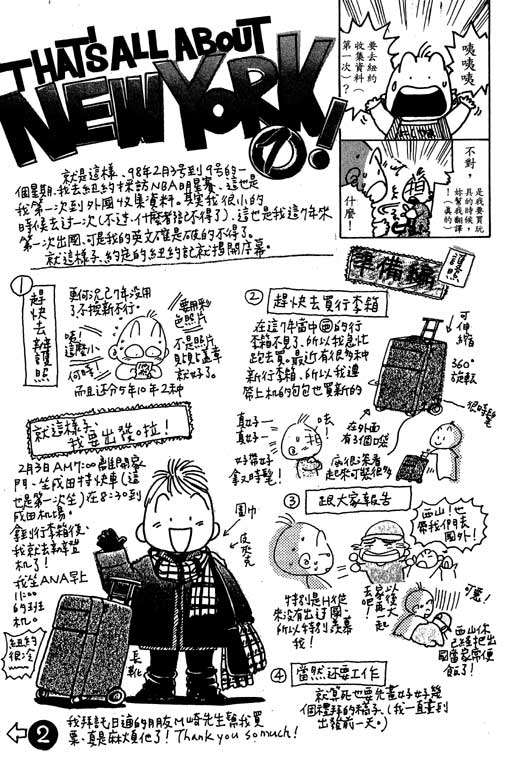 THAT'S ALL ABOUT
NEW YORK!
①
咦咦咦
要去紐約
收集資料（
第一次）？
不對，
是我要買玩
具的時候，
妳幫我翻譯
（真的）
什麼！
就是這樣、98年2月3号到9号的一
個星期、我去紐約採訪NBA明星賽、這也是
我第一次到外國收集資料。其實我很小的
時候去过一次（不过、什麼都記不得了）、這也是我這7年來
第一次出國、可是我的英文
就這樣子、約定的紐約記就揭開序幕。
準備編
護照
①
趕快去辦護照
更何況已7年沒用
了不換新不行。
咦！
這麼小
何時
要用彩
色照片
不是照片
就好了。
而且还分5年10年2种
②
趕快去買行李箱
在這7年當中因的行
李箱不見了、所以我急忙
跑去買。最近有很多种
新行李箱、所以我連
帶上机的包包也買新的
可伸縮
360°
旋転
很時髦
在外面
有3個喔
真好一
真好一
咦！
好帶好
拿又時髦！
就這樣子、
我要出發啦！
2月3日AM7:00離開家
門、坐成田特快車（這
也是第一次坐）在8:30到
成田机場。
拿到行李箱後、
我就去辦登
机了！
我坐ANA早上
11:00
的班
机。
紐約
很冷
圍巾
皮夾克
長靴
③
跟大家報告
西山！也
帶我們去
國外！
特別是H桑
來沒有出过國、
所以特別羨慕
我！
可惡！
西山你
已經把出
國當家常便
飯了！
④
當然还要工作
就算死也要先畫好好幾
個禮拜的稿子、（我一直畫到
出發前一天。）
②
我拜託日通的朋友M崎先生幫我買
票、真是麻煩他了！Thank you so much!